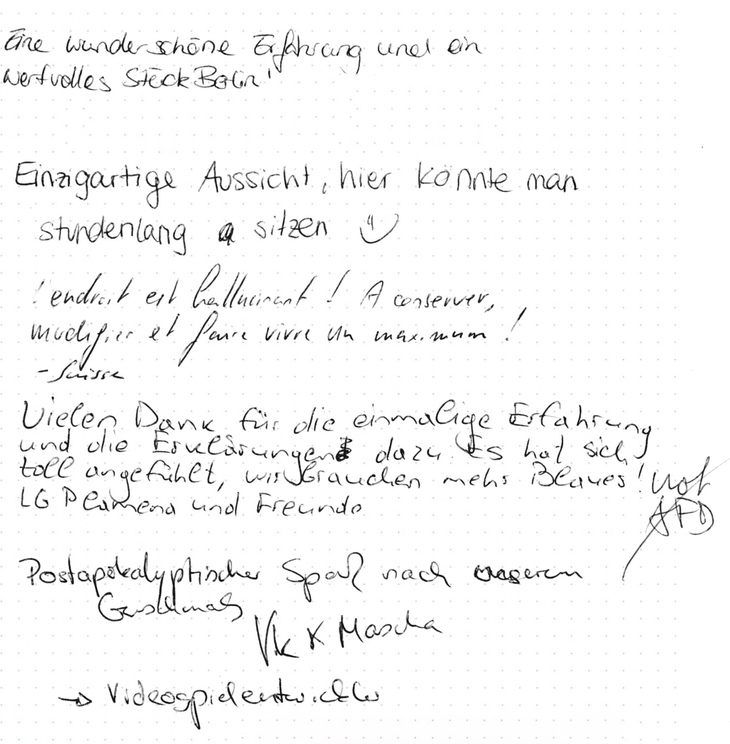 Eine wunderschöne Erfahrung und ein
wertvolles Stück Berlin!
Einzigartige Aussicht, hier könnte man
stundenlang sitzen
L'endroit est hallucinant ! A conserver,
modifier et faire vivre un maximum !
- Suisse
Vielen Dank für die einmalige Erfahrung
und die Erklärungen dazu Es hat sich
toll angefühlt, wir brauchen mehr Blaues!
not
AFD
LG Plamena und Freunde
Postapokalyptischer Spaß nach unserem
Geschmack
X Mascha
→ Videospielentwickler